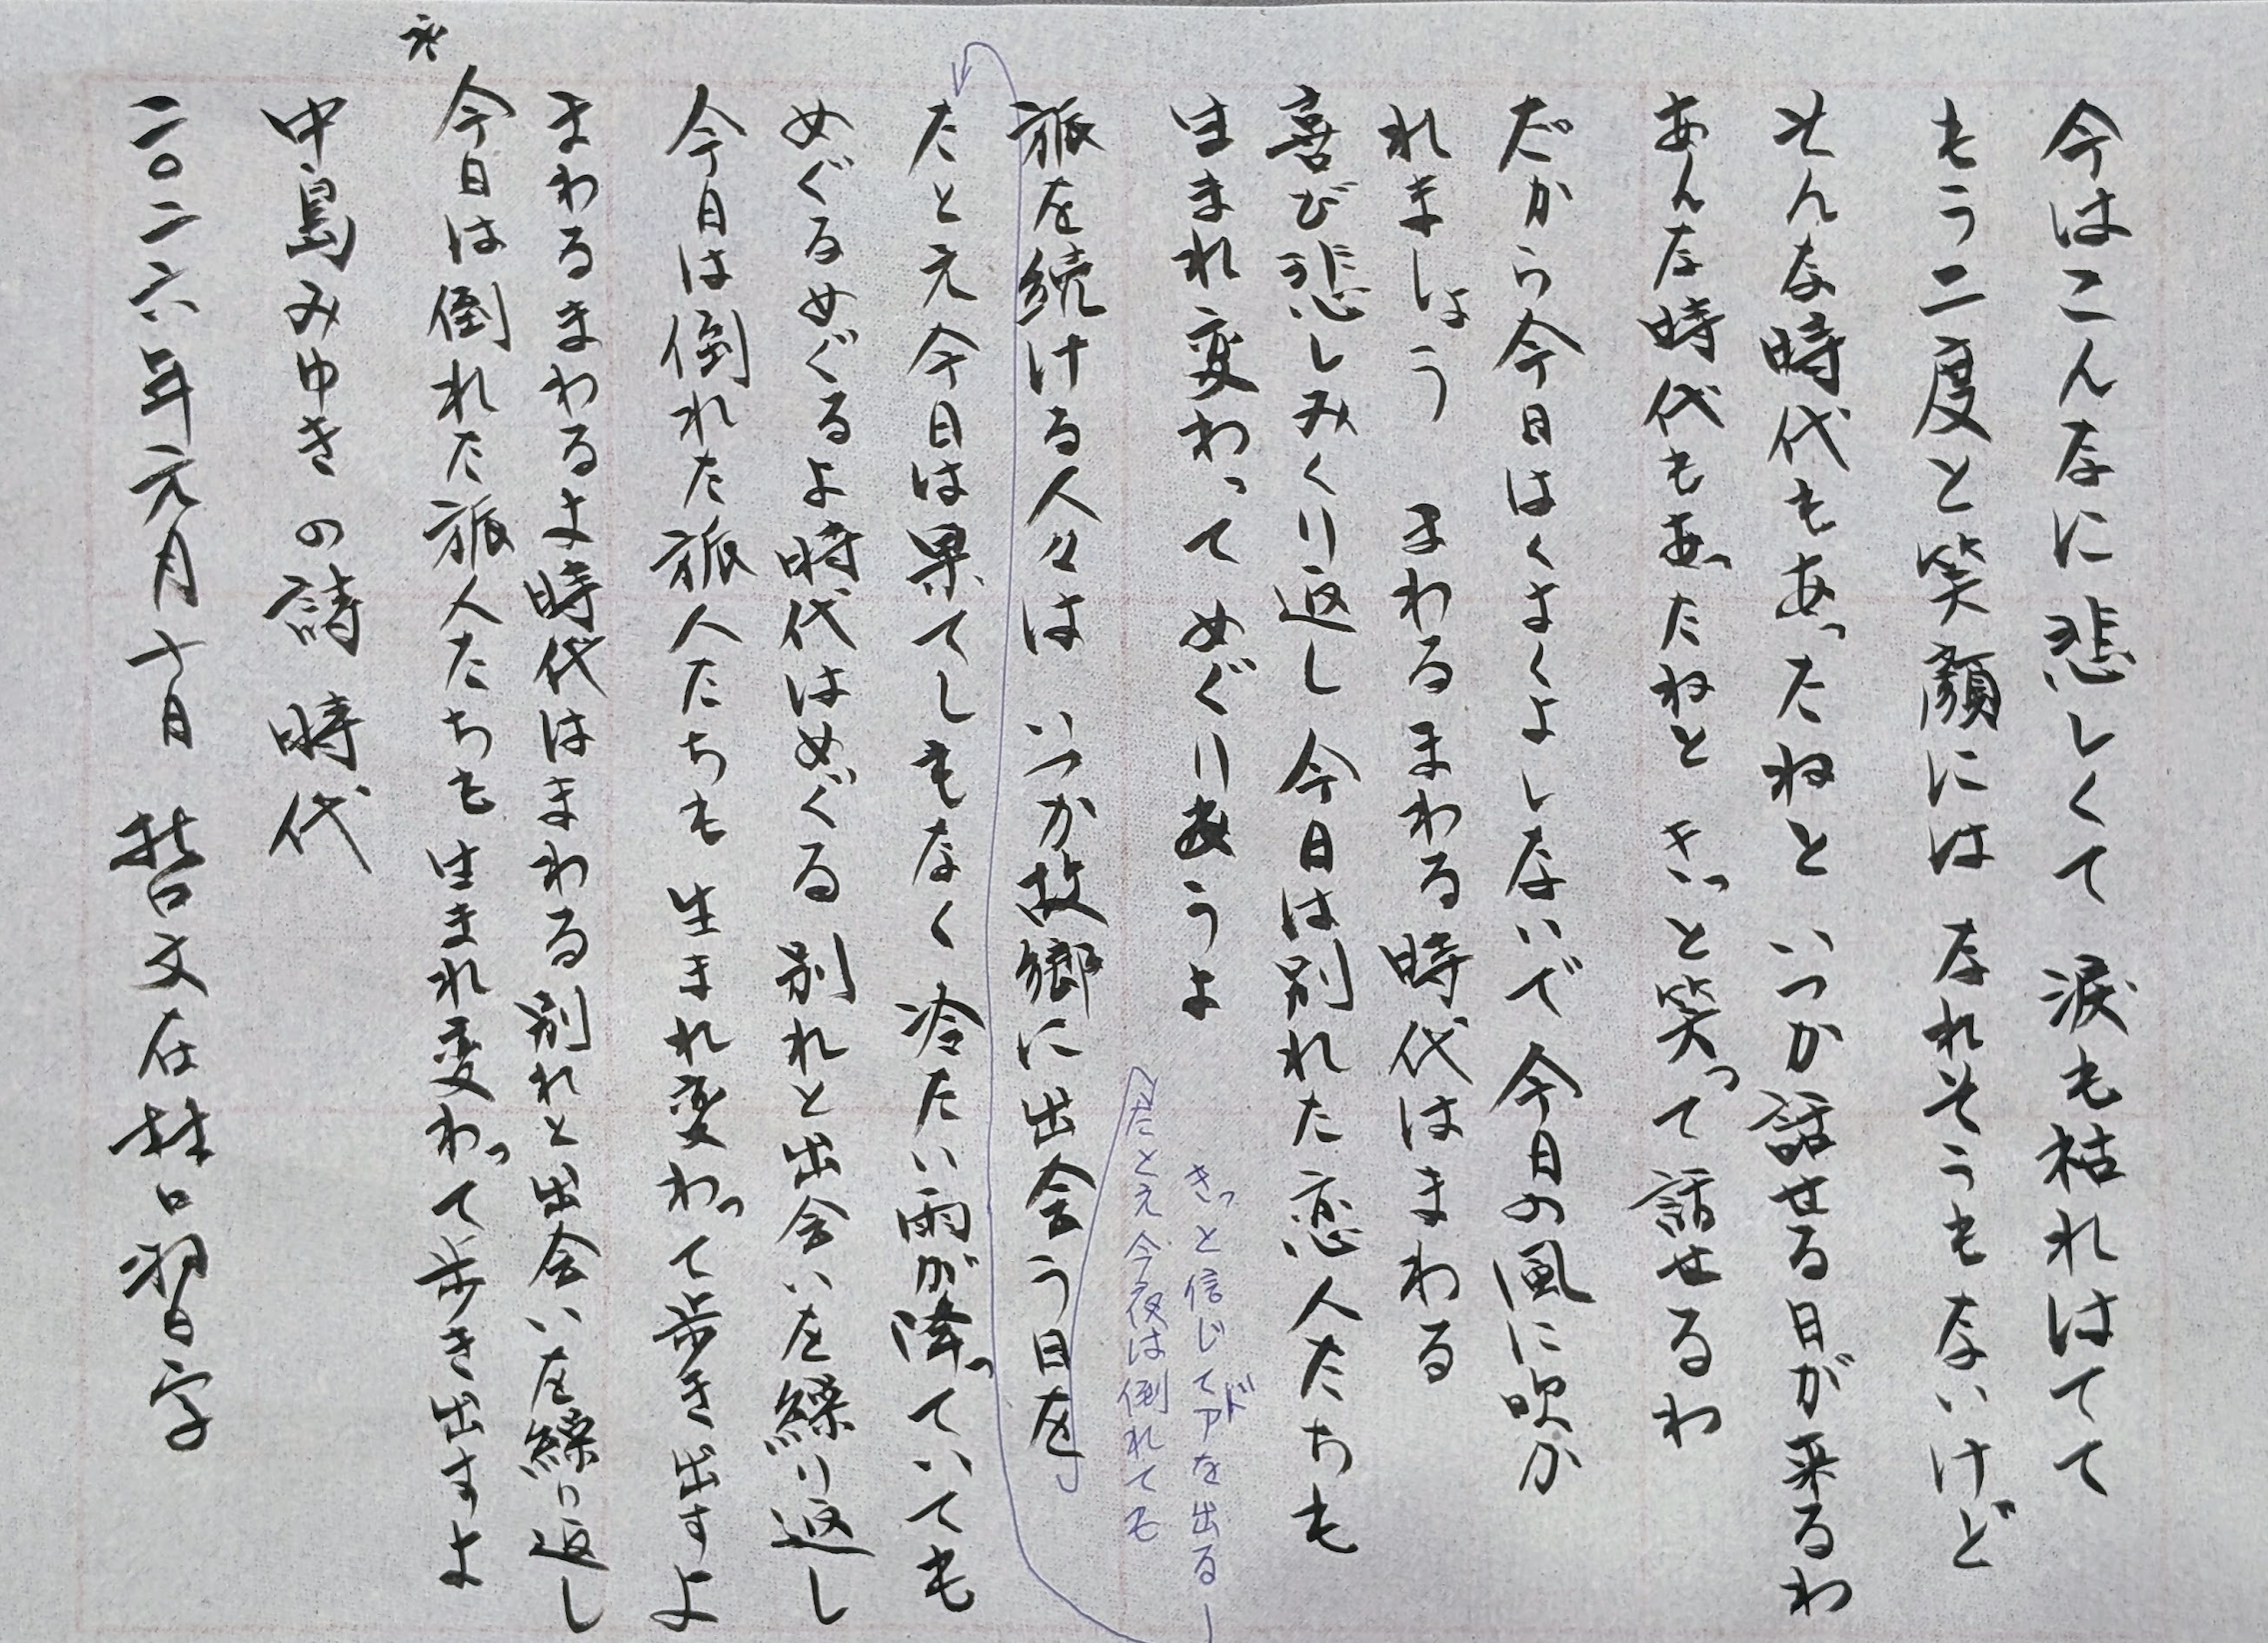 今はこんなに悲しくて 涙も枯れはてて
もう二度と笑顔には なれそうもないけど
そんな時代もあったねと いつか話せる日が来るわ
あんな時代もあったねと きっと笑って話せるわ
だから今日はくよくよしないで 今日の風に吹か
れましょう まわるまわる時代はまわる
喜び悲しみくり返し 今日は別れた恋人たちも
生まれ変わって めぐりあうよ
旅を続ける人々は いつか故郷に出会う日を
たとえ今夜は倒れても
きっと信じてドアを出る
たとえ今日は果てしもなく 冷たい雨が降っていても
めぐるめぐるよ時代はめぐる 別れと出会いを繰り返し
今日は倒れた旅人たちも 生まれ変わって歩き出すよ
まわるまわるよ時代はまわる 別れと出会いを繰り返し
今日は倒れた旅人たちも 生まれ変わって歩き出すよ
中島みゆきの詩 時代
二〇二六年元月十日 哲文在桂口習字